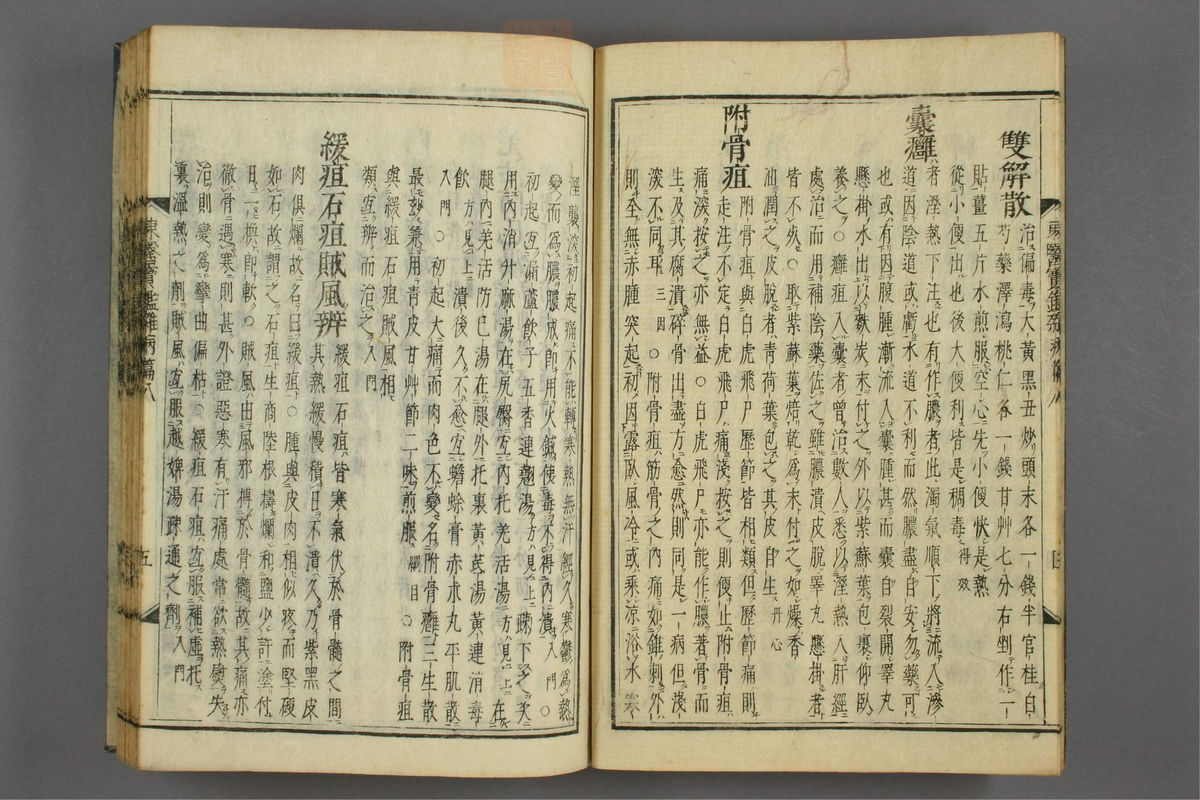 雙解散治偏毒大黃黑丑炒頭末各一錢半官桂白
芍藥澤瀉桃仁各一錢甘艸七分右剉作一
貼薑五片水煎服空心先小便快是熱
從小便出也後大便利皆是稠毒得效
囊癰者溼熱下注也有作膿者此濁氣順下將流入滲
道因陰道或虧水道不利而然膿盡自安勿藥可
也或有因腹腫漸流入囊腫甚而囊自裂開睪丸
懸掛水出以麩炭末付之外以紫蘇葉包裹仰臥
養之○癰疽入囊者曾治數人悉以溼熱入肝經
處治而用補陰藥佐之雖膿潰皮脫睪丸懸掛者
皆不死○取紫蘇葉焙乾爲末付之如燥香
油潤之皮脫者靑荷葉包之其皮自生丹心
附骨疽附骨疽與白虎飛尸歷節皆相類但歷節痛則
走注不定白虎飛尸痛淺按之則便止附骨疽
痛深按之亦無益○白虎飛尸亦能作膿著骨而
生及其腐潰碎骨出盡方愈然則同是一病但淺
深不同耳三因○附骨疽筋骨之內痛如錐刺外
則全無赤腫突起初因露臥風冷或乘涼浴水寒
溼襲深初起痛不能轉寒熱無汗經久寒鬱爲熱
變而爲膿膿成卽用火鍼使毒不得內潰入門○
初起宜漏蘆飮子五香連翹湯方見上疎下之
用內消升麻湯在尻臀宜內托羌活湯方見上在
腿內羌活防巳湯在腿外托裏黃芪湯黃連消毒
飮方見上潰後久不愈宜蟾蛤膏赤朮丸平肌散
入門○初起大痛而肉色不變名附骨癰三生散
最玅兼用靑皮甘艸節二味煎服綱目○附骨疽
與緩疽石疽賊風相
類宜辨而治之入門
緩疽石疽賊風辨緩疽石疽皆寒氣伏於骨髓之間
其熱緩慢積日不潰久乃紫黑皮
肉俱爛故名曰緩疽○腫與皮肉相似疼而堅硬
如石故謂之石疽生商陸根擣爛和鹽少許塗付
日一換卽軟○賊風由風邪搏於骨髓故其痛亦
徹骨遇寒則甚外證惡寒有汗痛處常欲熱熨失
治則變爲攣曲偏枯○緩疽石疽宜服補虛托
裏溫熱之劑賊風宜服越婢湯疎通之劑入門
東醫寶鑑雜病篇八
五